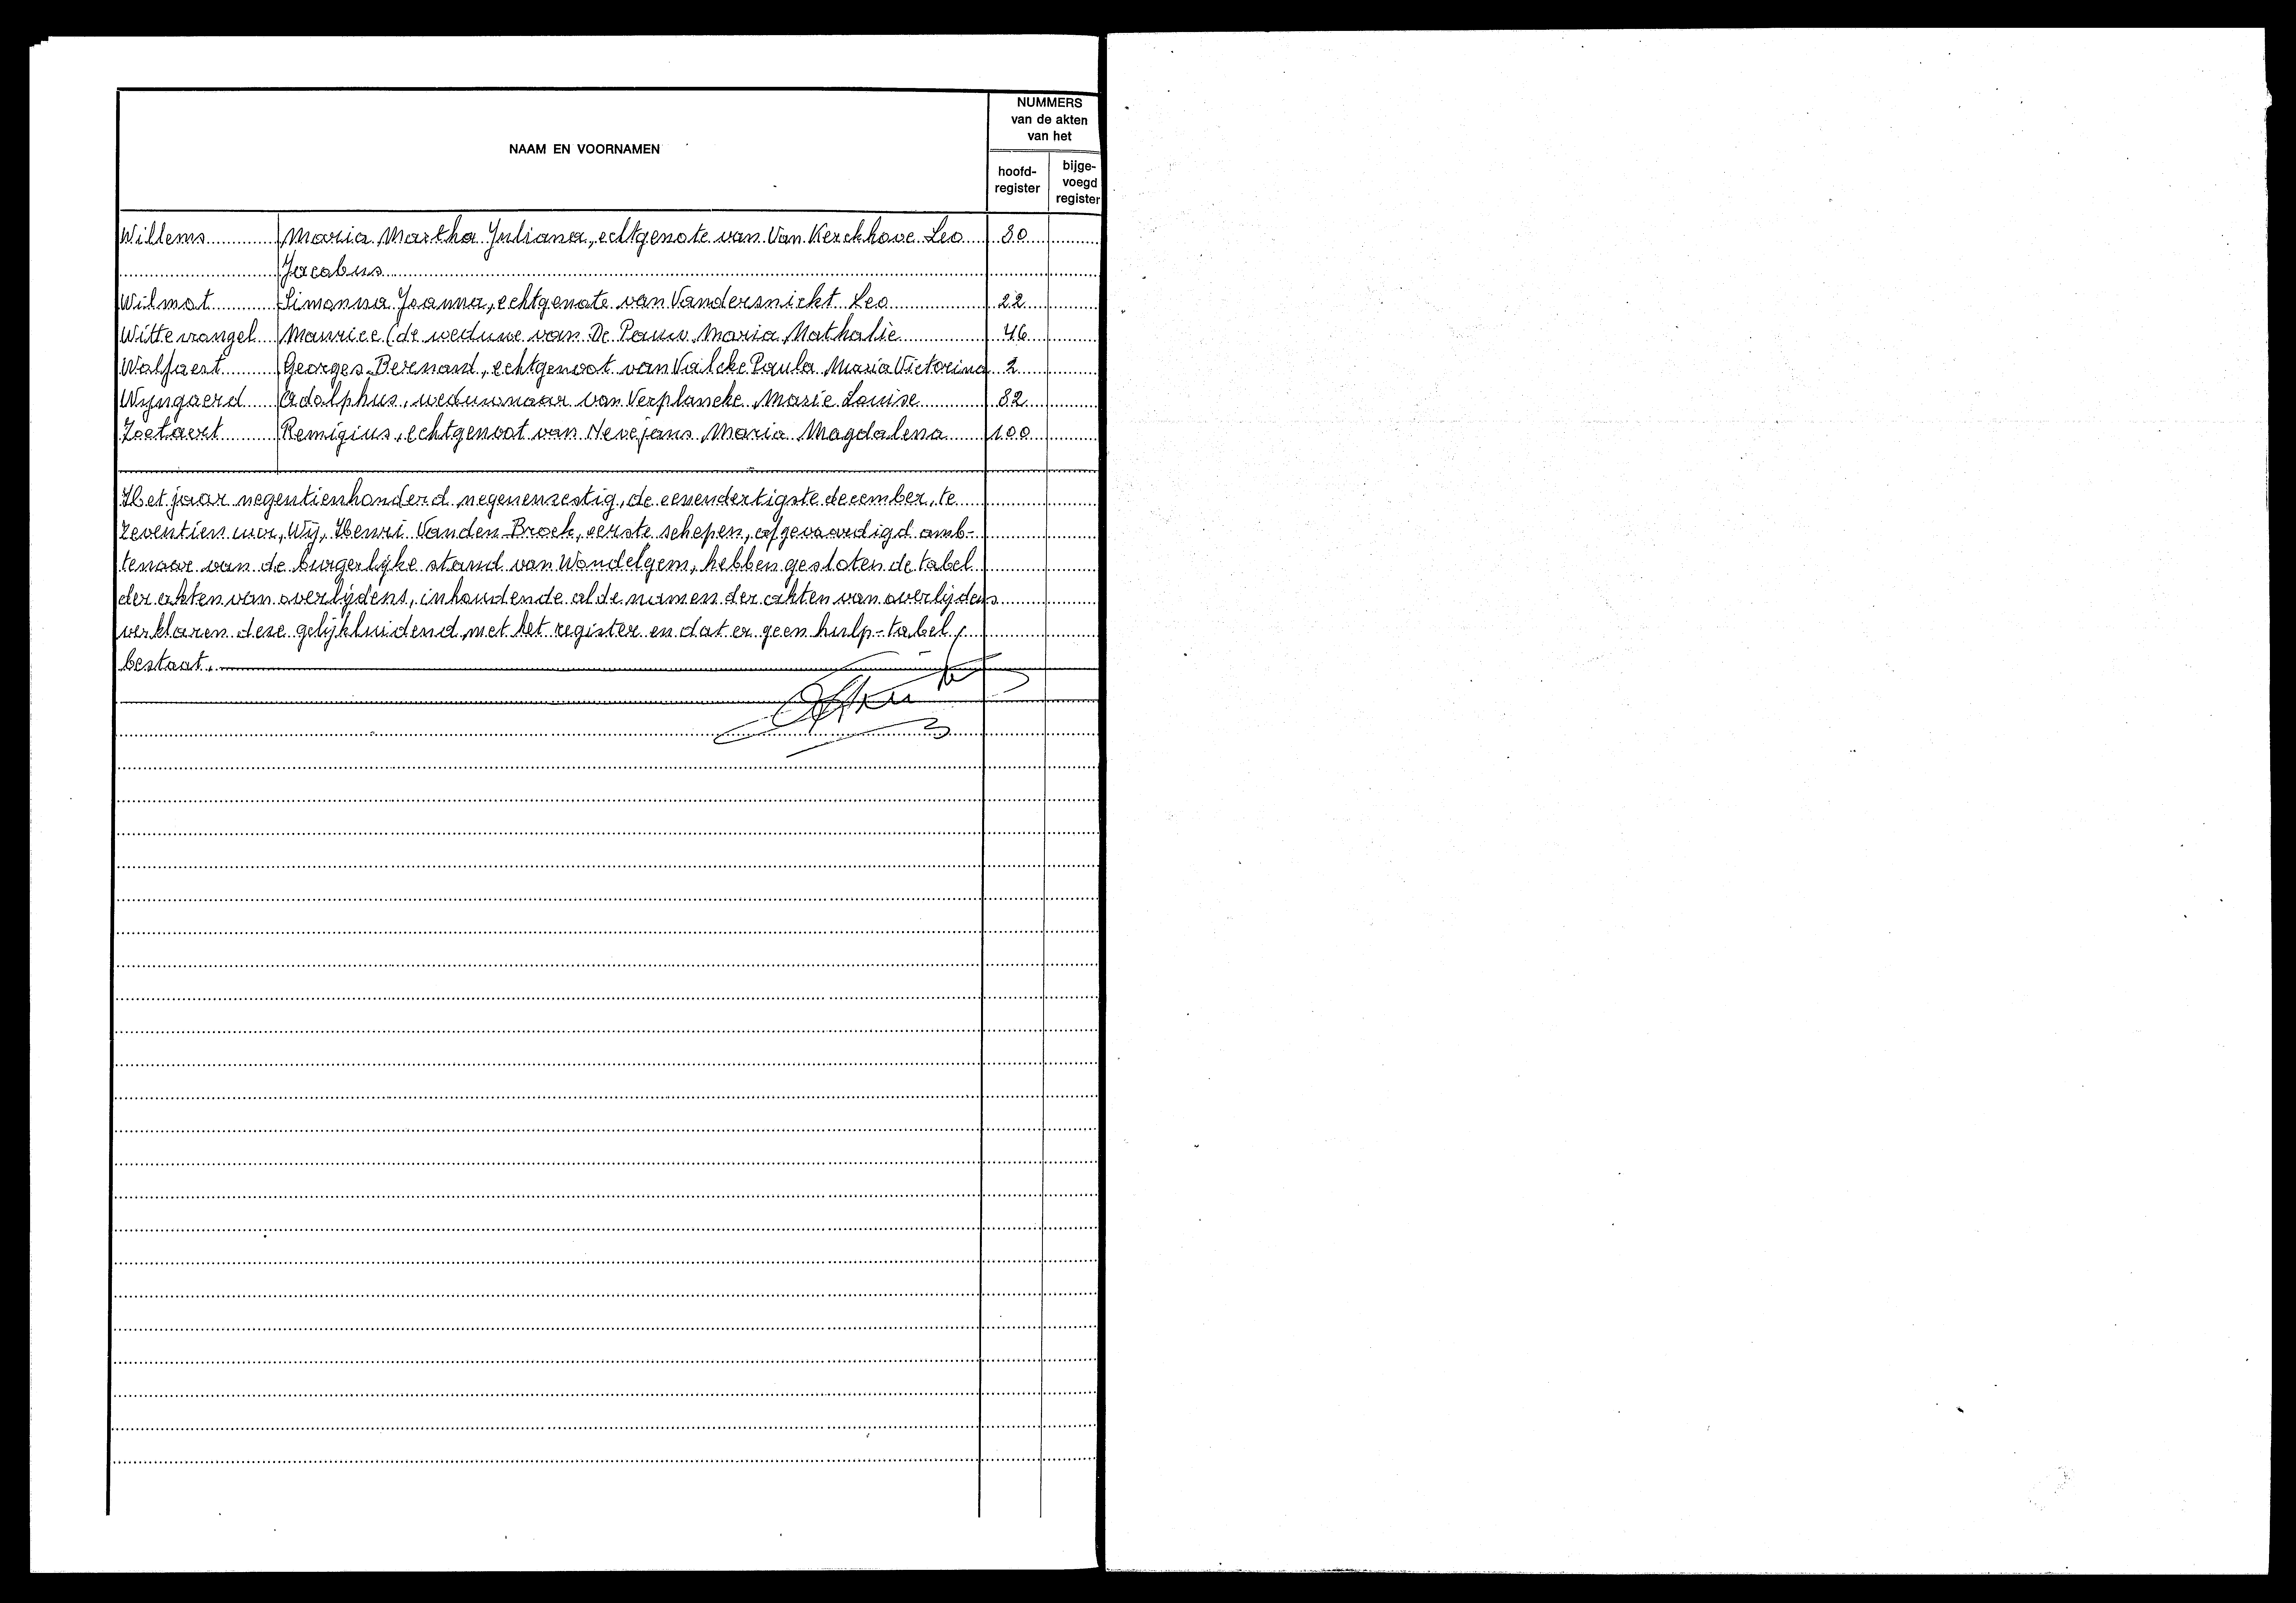 NAAM EN VOORNAMEN
NUMMERS
van de akten
van het
hoofd-
register
bijge-
voegd
register
Willems Maria Martha Juliana, echtgenote van Van Kerckhove Leo 80
Jacobus
Wilmot Simonna Joanna, echtgenote van Vandersnickt Leo 22
Wittevrongel Maurice (de weduwe van De Pauw Maria Nathalie 46
Wolfaert Georges Bernard, echtgenoot van Valcke Paula Maria Victorina 2
Wijngaerd Adolphus, weduwnaar van Verplancke Marie Louise 82
Zoetaert Remigius, echtgenoot van Nevejans Maria Magdalena 100
Het jaar negentienhonderd negenenzestig, de eenendertigste december, te
zeventien uur, Wij, Henri Vanden Broek, eerste schepen, afgevaardigd amb-
tenaar van de burgerlijke stand van Wondelgem, hebben gesloten de tabel
der akten van overlijdens, inhoudende al de namen der akten van overlijdens
verklaren deze gelijkluidend met het register en dat er geen hulp-tabel
bestaat.